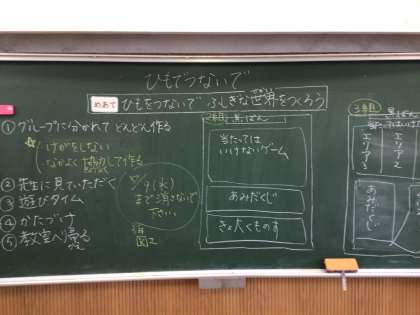 ひもでつないで
めあて ひもをつないで ふしぎな世界をつくろう
せかい
① グループに分かれて どんどん作る
☆ けがをしない
なかよく 協力して作る
② 先生に見ていただく
③ 遊びタイム
④ かたづけ
⑤ 教室へ帰る
7/9(水)
まで消さないで
下さい。
黒ばん
当たっては
いけないゲーム
あみだくじ
きょ大くものす
黒ばん
当たってはいけ
エリア3
エリア2
あみだくじ